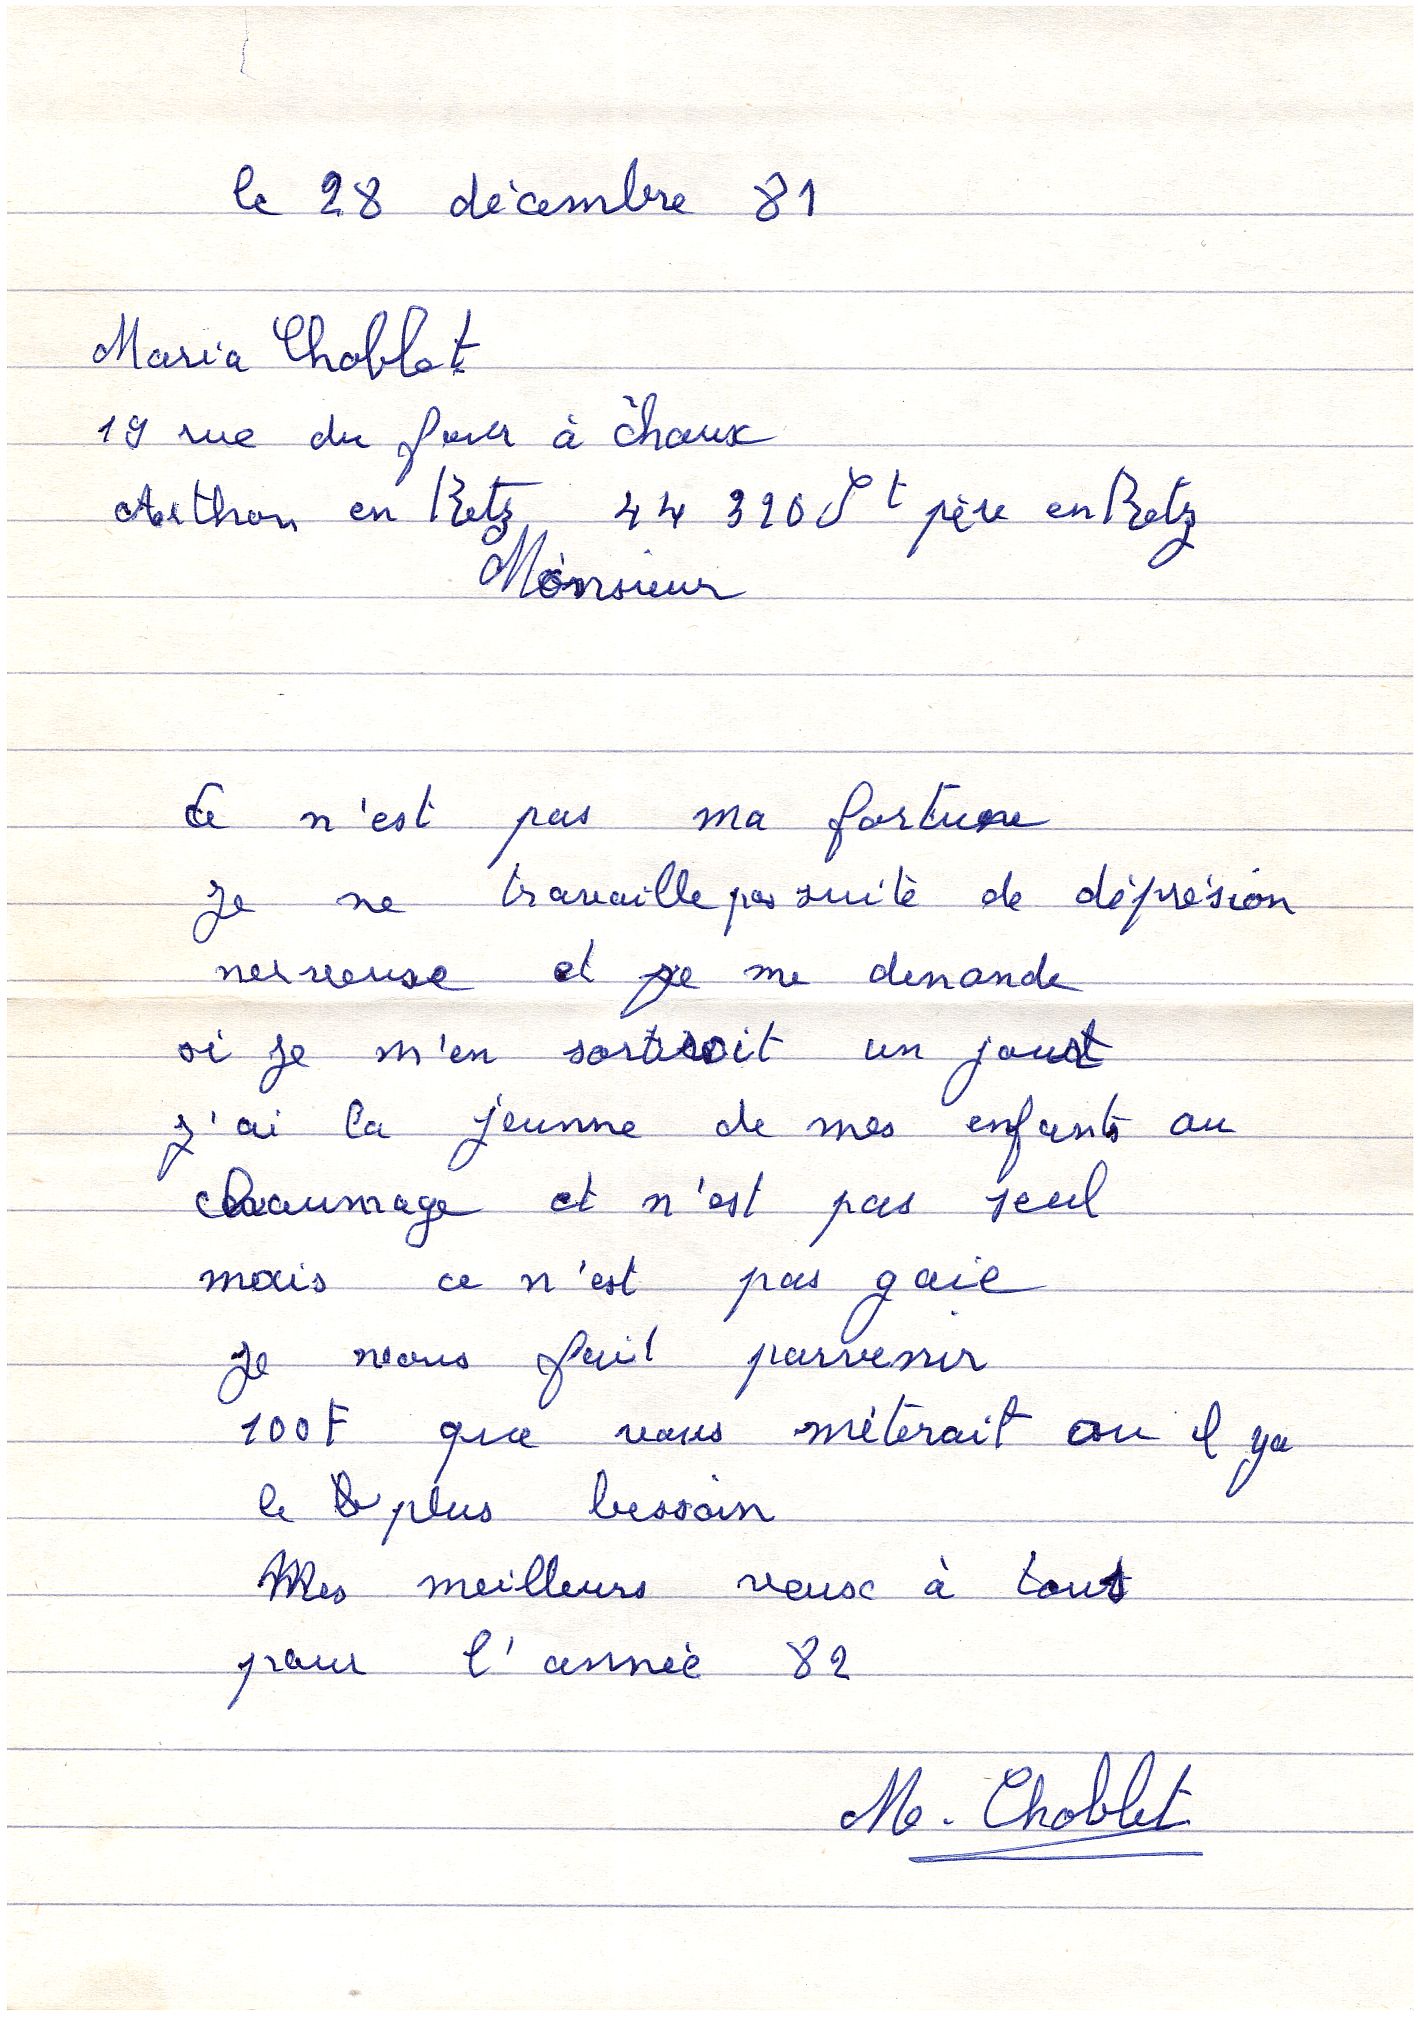 le 28 décembre 81
Maria Choblet
19 rue du four à chaux
Arthon en Retz 44 320 St père en Retz
Monsieur
Ce n'est pas ma fortune
Je ne travaille pas suite de déprésion
nerveuse et je me demande
si je m'en sortiroit un jourt
J'ai la jeunne de mes enfants au
chaumage et n'est pas seul
mais ce n'est pas gaie
Je vous fait parvenir
100F que vous méterait ou il ya
le plus bessoin
Mes meilleurs veux à tous
pour l'année 82
M. Choblet